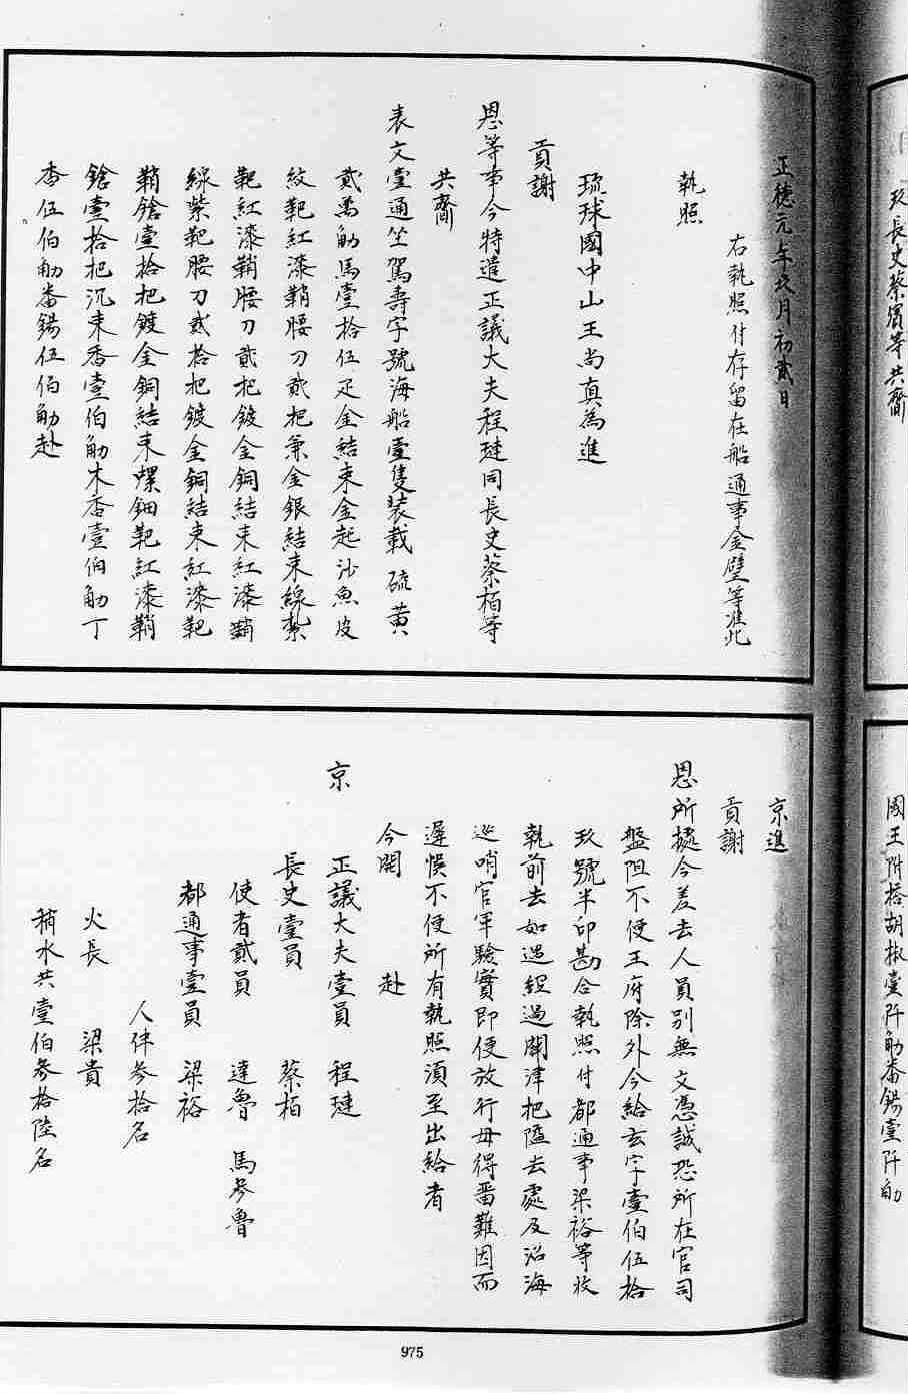 玖長史蔡賓等共齎
國王附搭胡椒壹阡觔番錫壹阡觔
正德元年玖月初貳日
右執照付存留在船通事金璧等准此
執照
琉球國中山王尚真為進
貢謝
恩等事今特遣正議大夫程璉同長史蔡栢等
共齎
表文壹通坐駕壽字號海船壹隻装載硫黄
貳萬觔馬壹拾伍疋金結束金起沙魚皮
紋靶紅漆鞘腰刀貳把兼金銀結束線紮
靶紅漆鞘腰刀貳把鍍金銅結束紅漆鞘
線紫靶腰刀貳拾把鍍金銅結束紅漆靶
鞘鎗壹拾把鍍金銅結束螺鈿靶紅漆鞘
鎗壹拾把沉束香壹伯觔木香壹伯觔丁
香伍伯觔番錫伍伯觔赴
京進
貢謝
恩所據今差去人員別無文憑誠恐所在官司
盤阻不便王府除外今給玄字壹伯伍拾
玖號半印勘合執照付都通事梁裕等收
執前去如遇經過關津把隘去處及沿海
巡哨官軍驗實即便放行毋得畱難因而
遲悮不便所有執照須至出給者
今開 赴
京 正議大夫壹員 程璉
長史壹員 蔡栢
使者貳員 達魯 馬參魯
都通事壹員 梁裕
人伴參拾名
火長 梁貴
稍水共壹伯參拾陸名
975